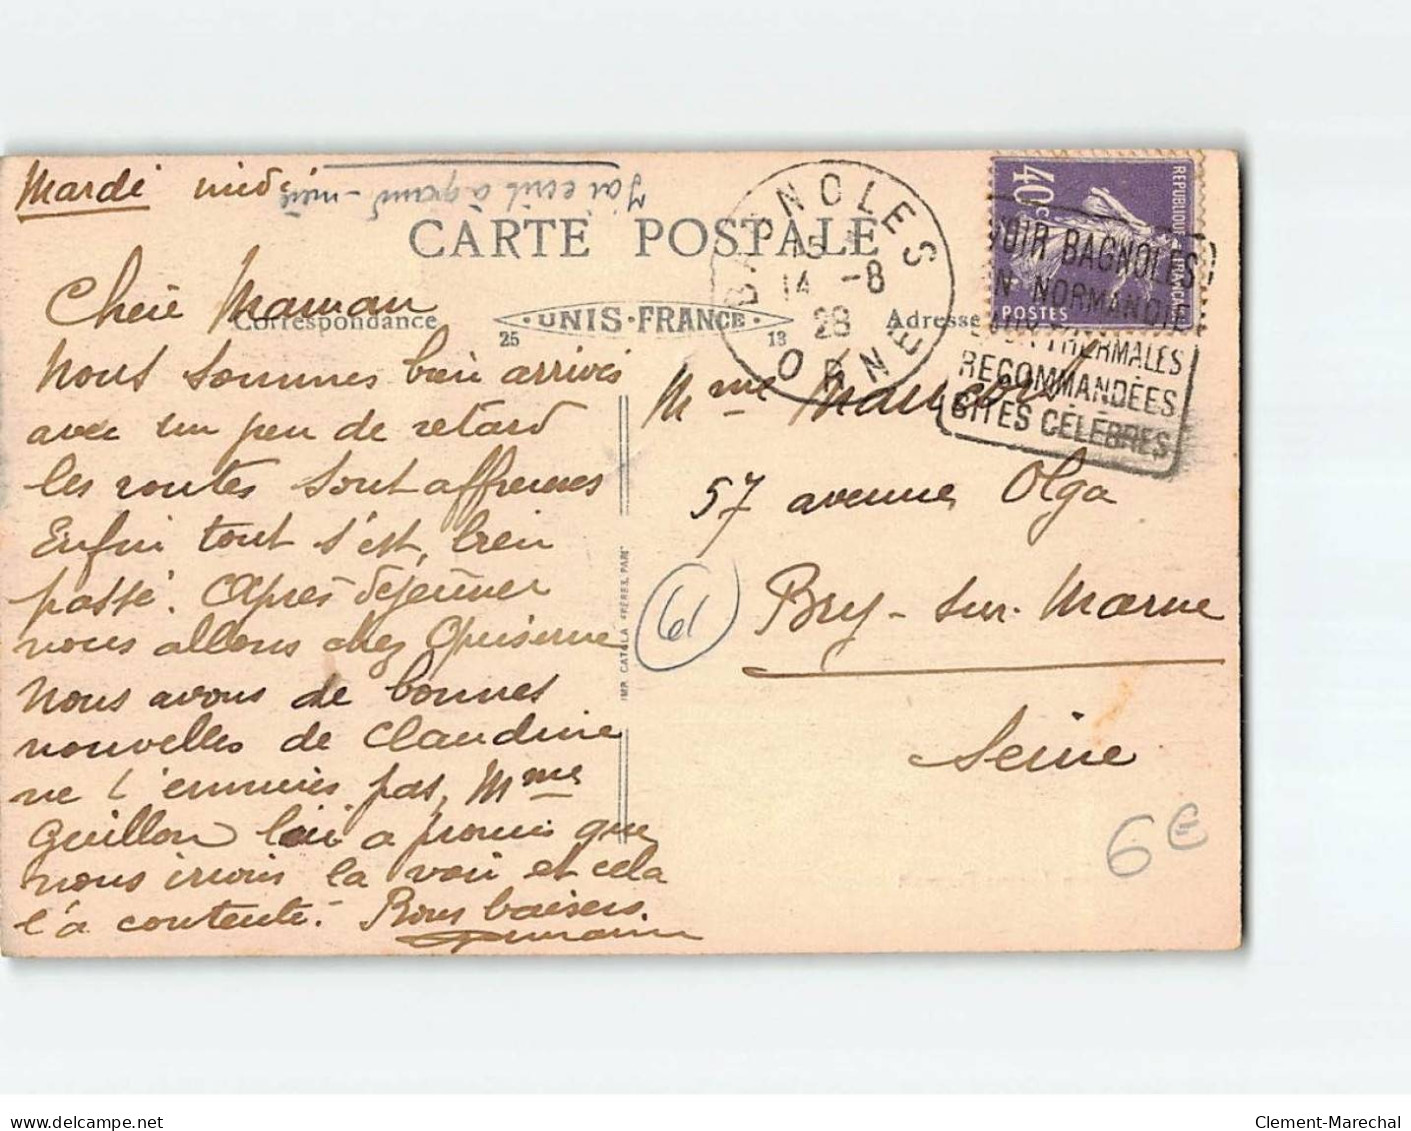 Mardi midi
J'ai écrit à grand-mère
CARTE POSTALE
Correspondance
25 · UNIS-FRANCE · 13
Adresse
Chère Maman
Nous sommes bien arrivés
avec un peu de retard
les routes sont affreuses
Enfin tout s'est bien
passé. Après déjeuner
nous allons chez
Nous avons de bonnes
nouvelles de Claudine
ne t'ennuies pas, Mme
Guillon lui a promis que
nous irions la voir et cela
l'a contenté. Bons baisers.
BAGNOLES
15
14 -8
28
ORNE
40c
REPUBLIQUE FRANCAISE
POSTES
VOIR BAGNOLES
EN NORMANDIE
EAUX THERMALES
RECOMMANDÉES
SITES CÉLÈBRES
Mme
57 avenue Olga
Bry-sur-Marne
Seine
61
6€
IMP. CATALA FRERES, PARIS
delcampe.net
Clement-Marechal